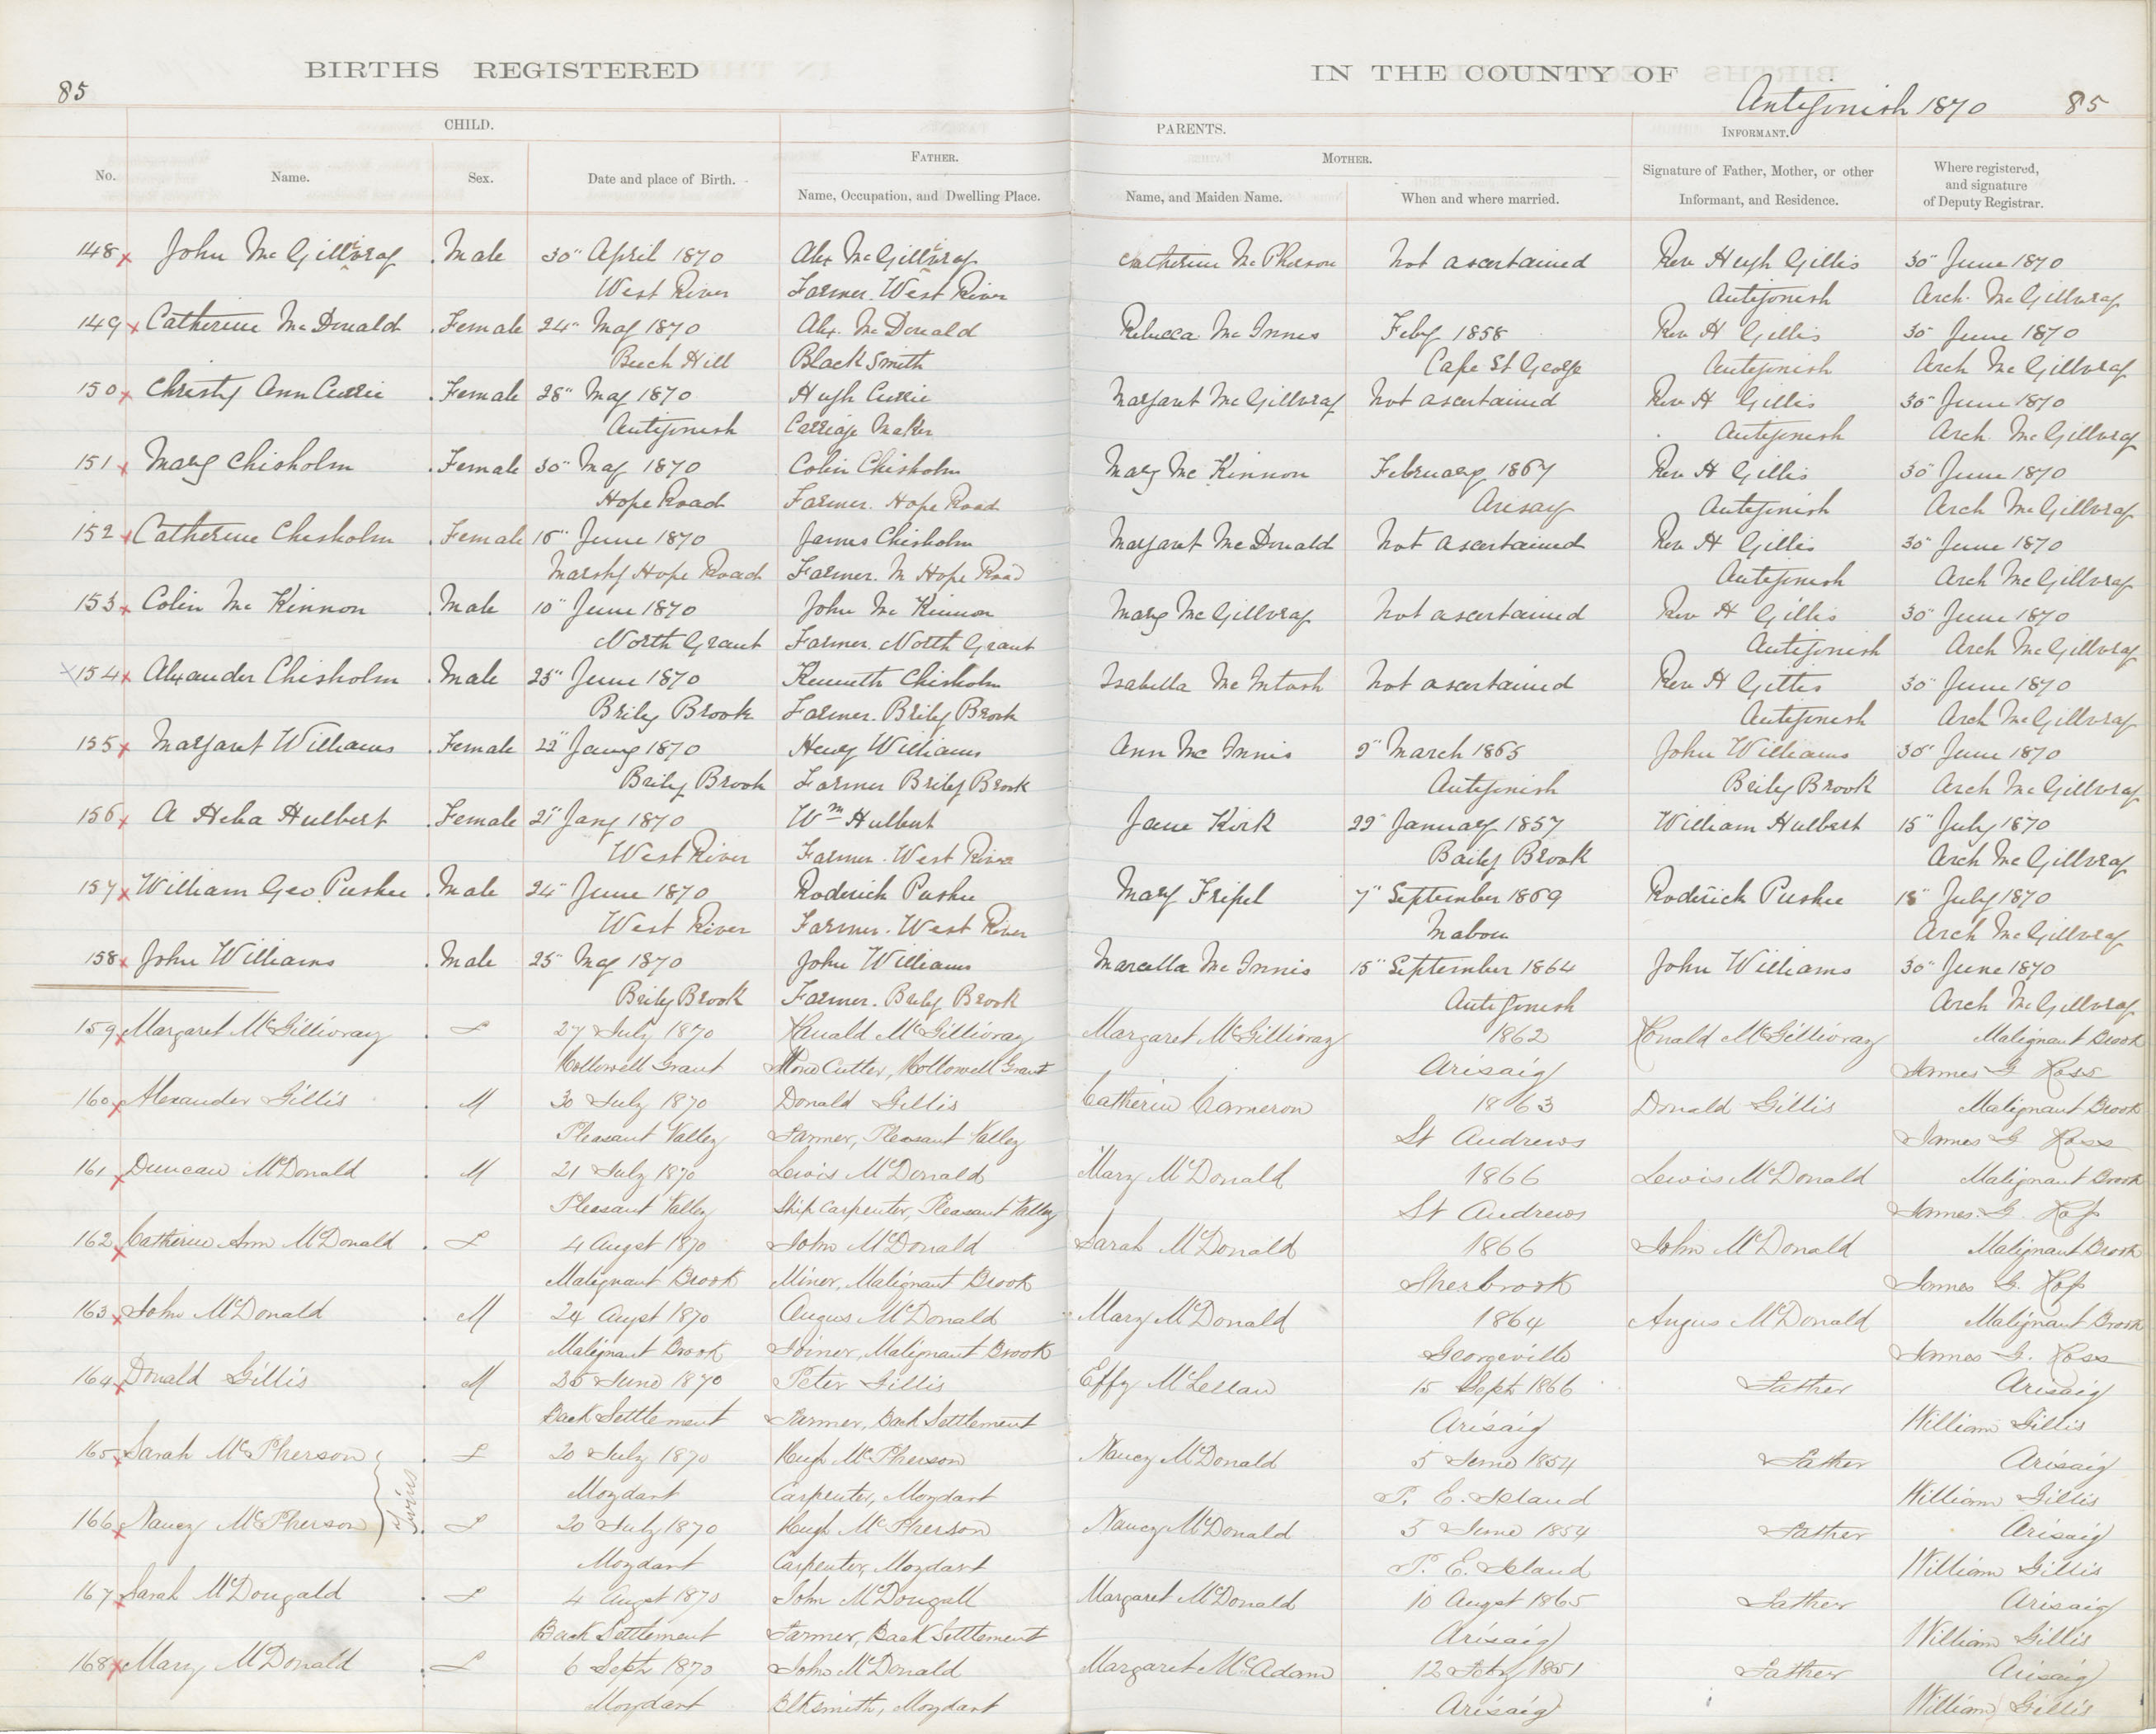 BIRTHS REGISTERED IN THE COUNTY OF
85 Antigonish 1870 85
CHILD. PARENTS. INFORMANT.
FATHER. MOTHER.
No. Name. Sex. Date and place of Birth. Name, Occupation, and Dwelling Place. Name, and Maiden Name. When and where married. Signature of Father, Mother, or other Informant, and Residence. Where registered, and signature of Deputy Registrar.
148 John McGillivray Male 30" April 1870 Alex McGillivray Catherine McPherson Not ascertained Rev Hugh Gillis 30" June 1870
West River Farmer. West River Antigonish Arch. McGillvray
149 Catherine McDonald Female 24" May 1870 Alex. McDonald Rebecca McInnes Feby 1858 Rev H Gillis 30" June 1870
Beech Hill Black Smith Cape St George Antigonish Arch McGillvray
150 Christy Ann Currie Female 28" May 1870 Hugh Currie Margaret McGillvray Not ascertained Rev H Gillis 30" June 1870
Antigonish Carriage Maker Antigonish Arch. McGillvray
151 Mary Chisholm Female 30" May 1870 Colin Chisholm Mary McKinnon February 1867 Rev H Gillis 30" June 1870
Hope Road Farmer. Hope Road Arisay Antigonish Arch McGillvray
152 Catherine Chisholm Female 16" June 1870 James Chisholm Margaret McDonald Not ascertained Rev H Gillis 30" June 1870
Marshy Hope Road Farmer. M Hope Road Antigonish Arch McGillvray
153 Colin McKinnon Male 10" June 1870 John McKinnon Mary McGillvray Not ascertained Rev H Gillis 30" June 1870
North Grant Farmer. North Grant Antigonish Arch McGillvray
154 Alexander Chisholm Male 25" June 1870 Kenneth Chisholm Isabella McIntosh Not ascertained Rev H Gillis 30" June 1870
Briley Brook Farmer. Briley Brook Antigonish Arch McGillvray
155 Margaret Williams Female 22" Jany 1870 Henry Williams Ann McInnis 9" March 1865 John Williams 30" June 1870
Briley Brook Farmer Briley Brook Antigonish Briley Brook Arch McGillvray
156 A Heba Hulbert Female 21" Jany 1870 Wm Hulbert Jane Kirk 22" January 1857 William Hulbert 15" July 1870
West River Farmer. West River Baily Brook Arch McGillvray
157 William Geo. Pushee Male 24" June 1870 Roderick Pushee Mary Fripel 7" September 1869 Roderick Pushee 18" July 1870
West River Farmer. West River Mabou Arch McGillvray
158 John Williams Male 25" May 1870 John Williams Marcella McInnis 15" September 1864 John Williams 30" June 1870
Briley Brook Farmer. Briley Brook Antigonish Arch McGillvray
159 Margaret McGillivray F 27 July 1870 Ranald McGillivray Margaret McGillivray 1862 Ronald McGillivray Malignant Brook
Hollowell Grant Stone Cutter, Hollowell Grant Arisaig James G Ross
160 Alexander Gillis M 30 July 1870 Donald Gillis Catherin Cameron 1863 Donald Gillis Malignant Brook
Pleasant Valley Farmer, Pleasant Valley St Andrews James G Ross
161 Duncan McDonald M 21 July 1870 Lewis McDonald Mary McDonald 1866 Lewis McDonald Malignant Brook
Pleasant Valley Ship Carpenter, Pleasant Valley St Andrews James. G. Ross
162 Catherin Ann McDonald F 4 Augst 1870 John McDonald Sarah McDonald 1866 John McDonald Malignant Brook
Malignant Brook Miner, Malignant Brook Sherbrook James G. Ross
163 John McDonald M 24 Augst 1870 Angus McDonald Mary McDonald 1864 Angus McDonald Malignant Brook
Malignant Brook Joiner, Malignant Brook Georgeville James G. Ross
164 Donald Gillis M 25 June 1870 Peter Gillis Effy McLellan 15 Sept 1866 Father Arisaig
Back Settlement Farmer, Back Settlement Arisaig William Gillis
165 Sarah McPherson F 20 July 1870 Hugh McPherson Nancy McDonald 5 June 1854 Father Arisaig
Twins Moydart Carpenter, Moydart P. E. Island William Gillis
166 Nancy McPherson F 20 July 1870 Hugh McPherson Nancy McDonald 5 June 1854 Father Arisaig
Moydart Carpenter, Moydart P. E. Island William Gillis
167 Sarah McDougald F 4 Augst 1870 John McDougall Margaret McDonald 10 Augst 1865 Father Arisaig
Back Settlement Farmer, Back Settlement Arisaig William Gillis
168 Mary McDonald F 6 Sept 1870 John McDonald Margaret McAdam 12 Feby 1851 Father Arisaig
Moydart Blksmith, Moydart Arisaig William Gillis